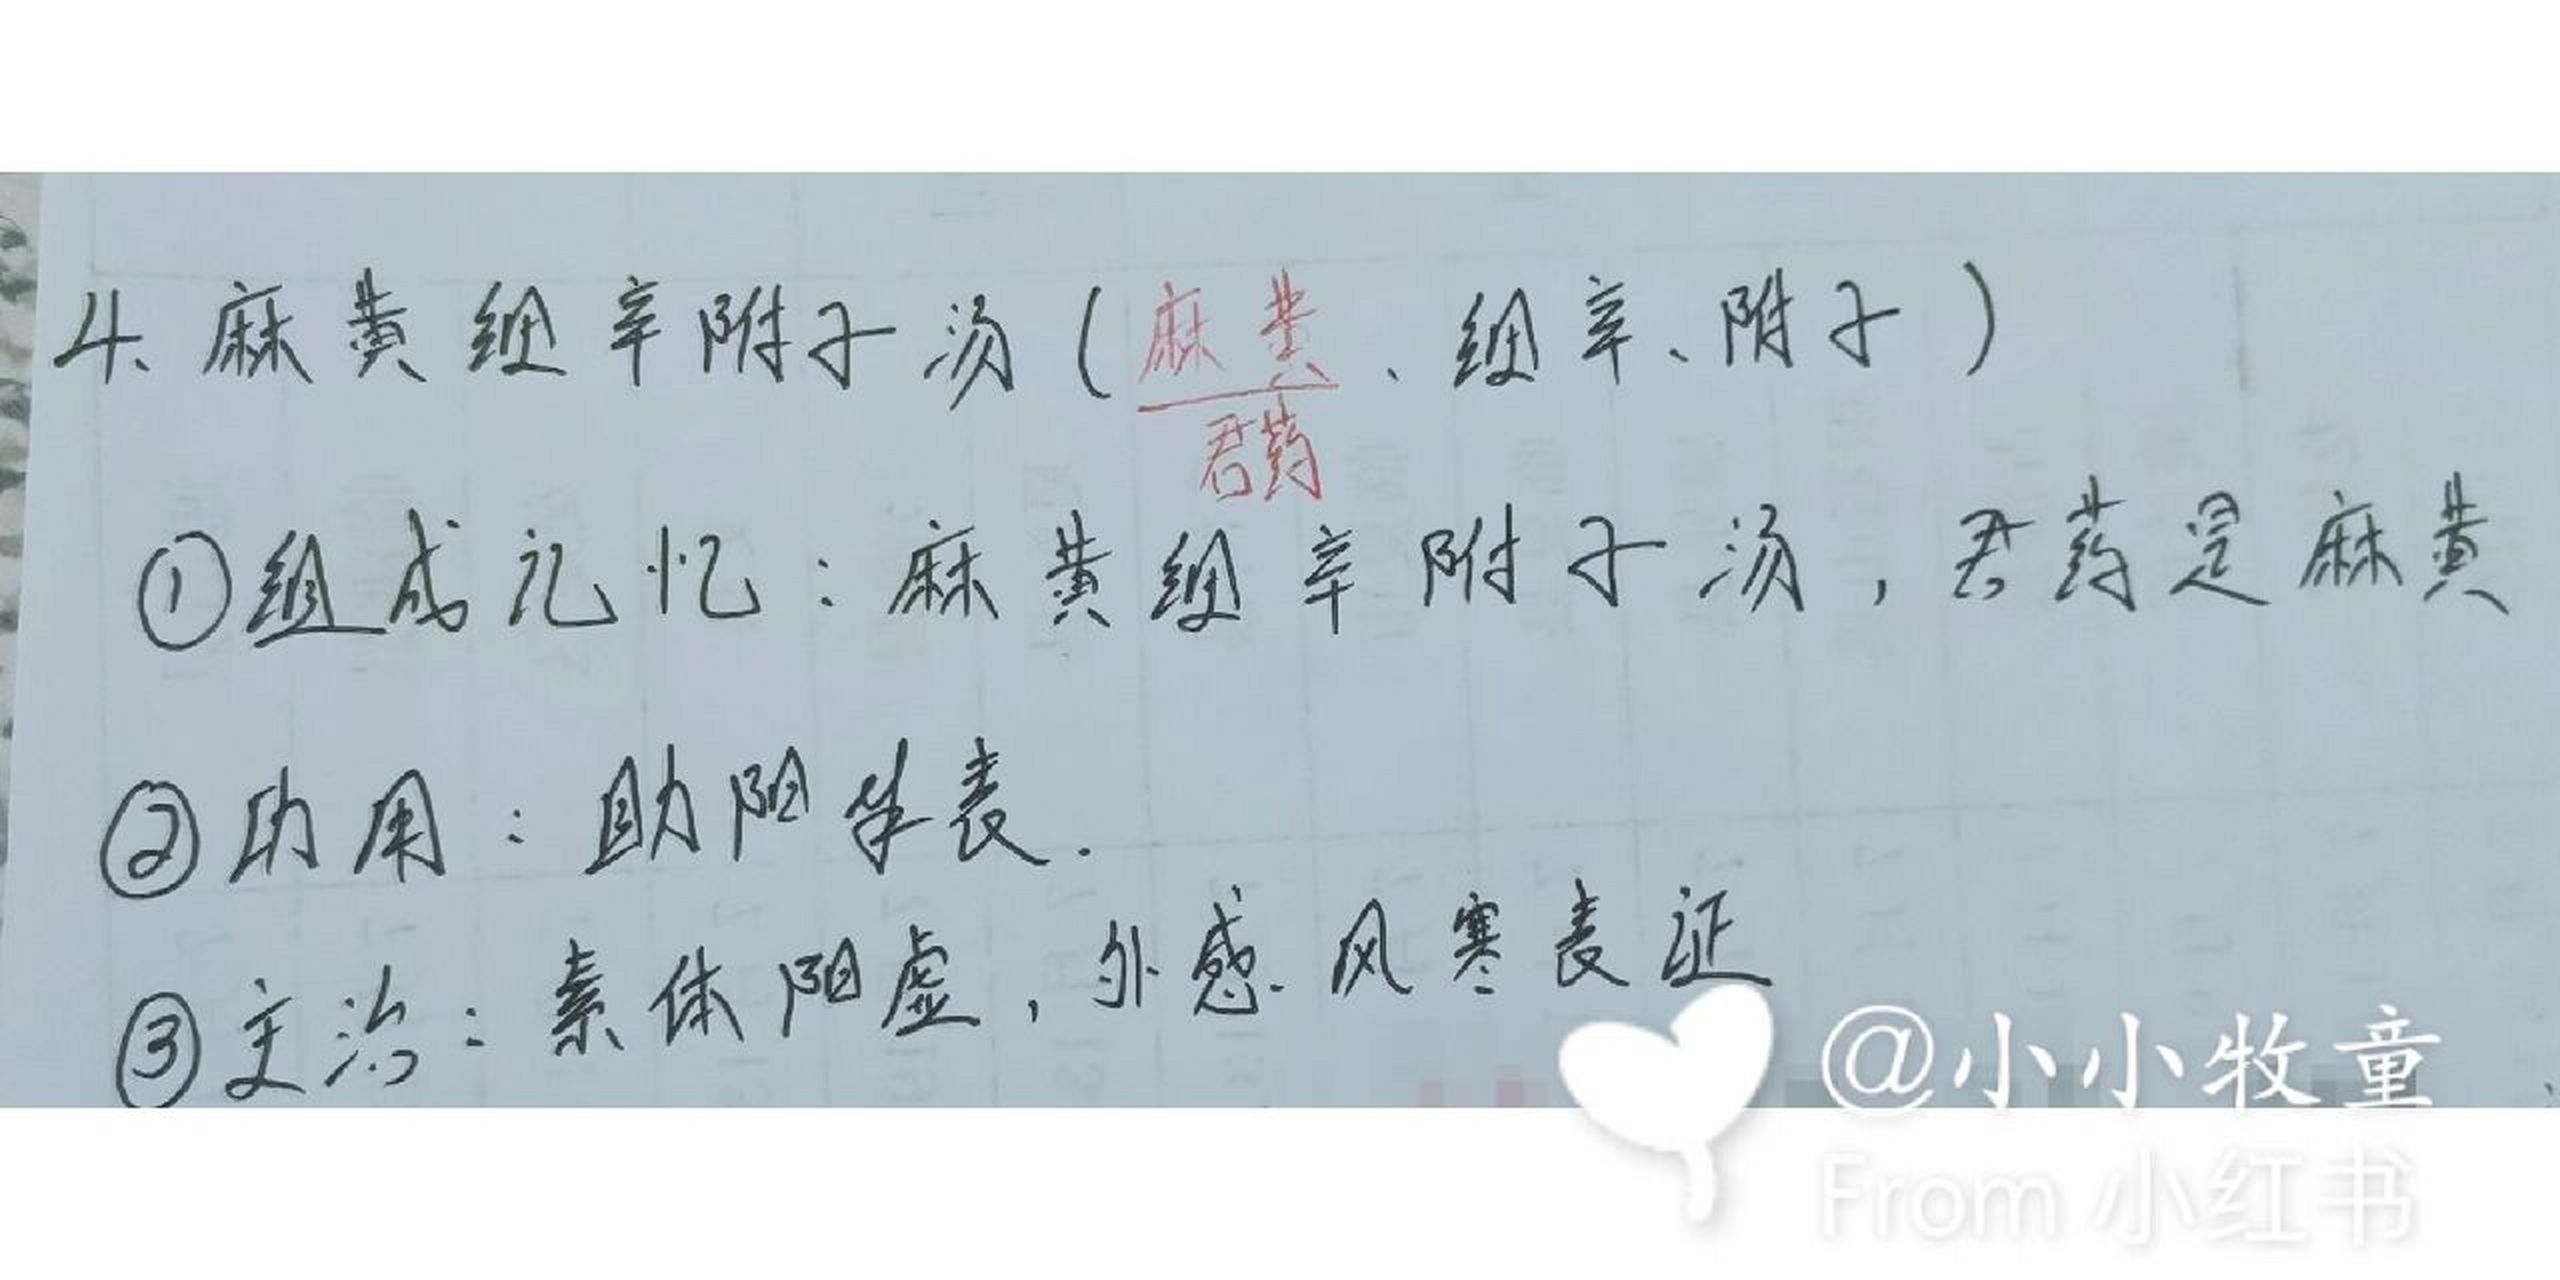 4、麻黄细辛附子汤(麻黄、细辛、附子)
君药
①组成记忆:麻黄细辛附子汤,君药是麻黄
②功用:助阳解表.
③主治:素体阳虚,外感风寒表证
@小小牧童
From 小红书